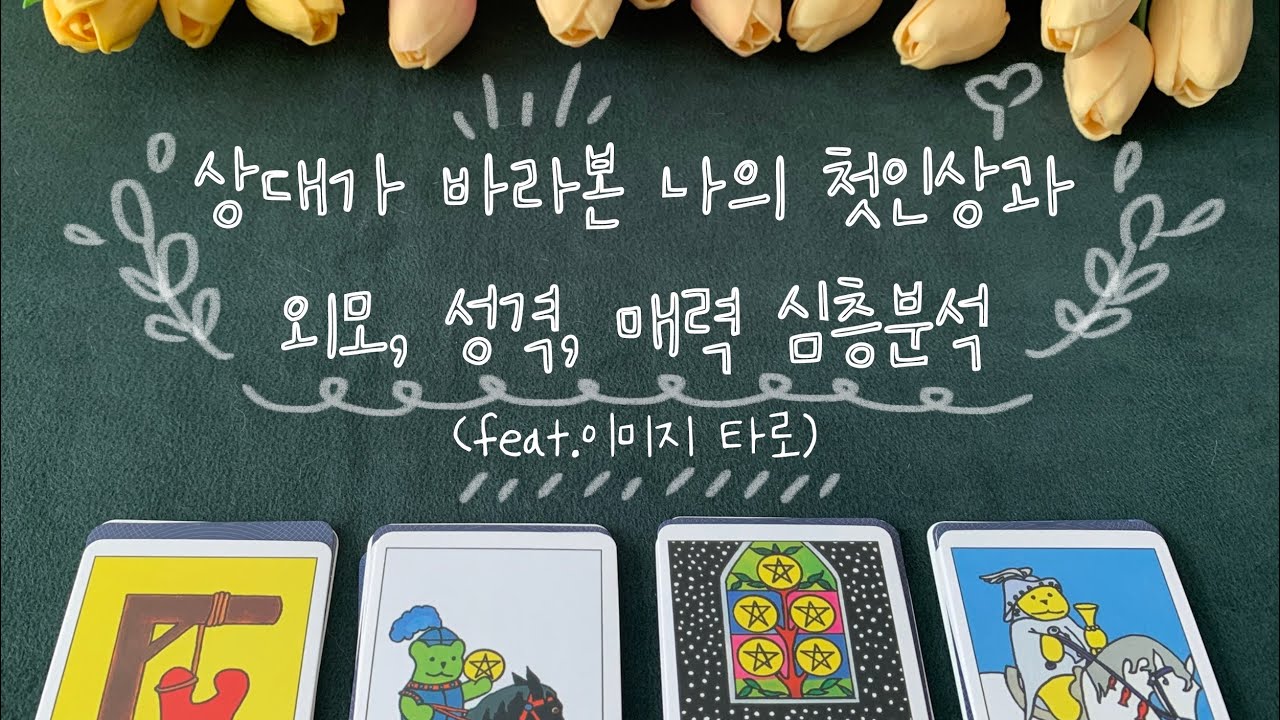 상대가 바라본 나의 첫인상과
외모, 성격, 매력 심층분석
(feat.이미지 타로)